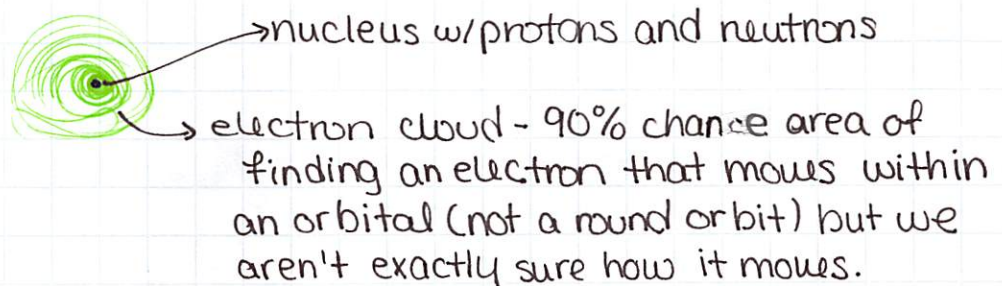 nucleus w/protons and neutrons
electron cloud - 90% chance area of
finding an electron that moves within
an orbital (not a round orbit) but we
aren't exactly sure how it moves.